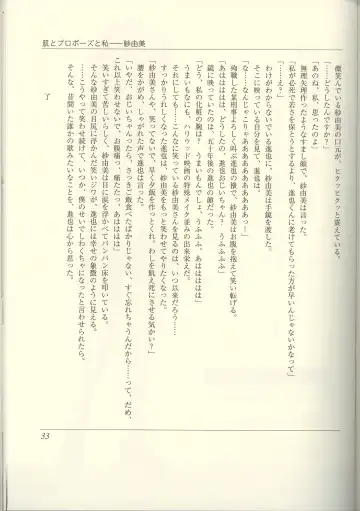 肌とプロポーズと私――紗由美
微笑んでいる紗由美の口元が、ヒクッヒクッと震えている。
「……どうしたんですか？」
「あのね、私、思ったのよ」
無理矢理作ったようなすまし顔で、紗由美は言った。
「私が必死で若さを保とうとするより、進也くんに老けてもらった方が早いんじゃないかなって」
わけがわからないでいる進也に、紗由美は手鏡を渡した。
そこに映っている自分を見て、進也は、
「な……なんじゃこりゃあああああぁっ！」
殉職した某刑事よろしく叫ぶ進也の様で、紗由美はお腹を抱えて笑い転げる。
「あはははは！ どうしたの、進也おじいちゃん？ うふふふふ」
鏡に映っていたのは、五十年後の進也の顔だった。
「どう、私の化粧の腕は？ うまいもんでしょ。うふふふ、あはははは」
うまいもなにも、ハリウッド映画の特殊メイク並みの出来栄えだ。
それにしても……こんなに笑ってる紗由美さんを見るのは、いつ以来だろう……
すっかりうれしくなった進也は、紗由美をもっと笑わせてやりたくなった。
「紗由美さんや、笑ってないで、早く夕飯を作ってくれ。わしを餓え死にさせる気かい？」
腰をかがめ、しゃがれた声で進也は言った。
「いやだ、おじいちゃんったら、さっきご飯食べたばかりじゃない、すぐ忘れちゃうんだから……って、だめ、
これ以上笑わせないで、お腹痛っ、痛たたっ、あはははは」
笑いすぎて苦しいらしく、紗由美は目に涙を浮かべてバンバン床を叩いている。
そんな紗由美の目尻に浮かんだ笑いジワが、進也には幸せの象徴のように見える。
……こうやって笑わせ続けて、いつか、僕のせいでしわくちゃになったと言わせられたら。
そんな、昔聞いた誰かの歌みたいなことを、進也は心から思った。
了
33